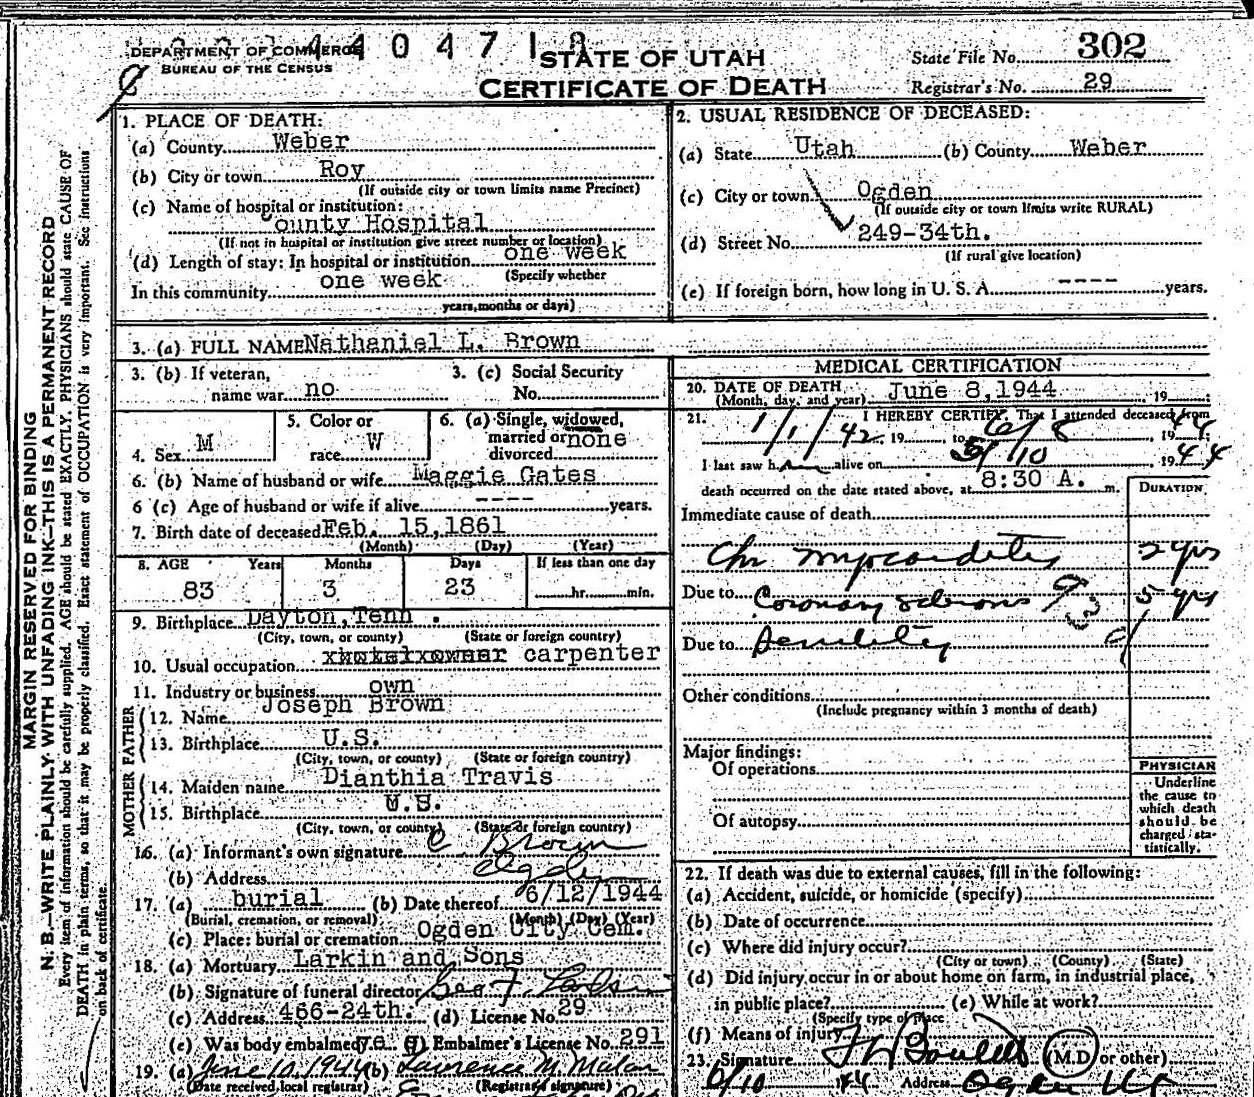 DEPARTMENT OF COMMERCE
BUREAU OF THE CENSUS
4 4 0 4 7 1
STATE OF UTAH
CERTIFICATE OF DEATH
State File No. 302
Registrar's No. 29
MARGIN RESERVED FOR BINDING
N. B.—WRITE PLAINLY WITH UNFADING INK—THIS IS A PERMANENT RECORD
Every item of information should be carefully supplied. AGE should be stated EXACTLY. PHYSICIANS should state CAUSE OF
DEATH in plain terms, so that it may be properly classified. Exact statement of OCCUPATION is very important. See instructions
on back of certificate.
1. PLACE OF DEATH:
(a) County Weber
(b) City or town Roy
(If outside city or town limits name Precinct)
(c) Name of hospital or institution:
ounty Hospital
(If not in hospital or institution give street number or location)
(d) Length of stay: In hospital or institution one week
(Specify whether
In this community one week
years, months or days)
2. USUAL RESIDENCE OF DECEASED:
(a) State Utah (b) County Weber
(c) City or town Ogden
(If outside city or town limits write RURAL)
(d) Street No. 249-34th.
(If rural give location)
(e) If foreign born, how long in U. S. A. ---- years.
3. (a) FULL NAME Nathaniel L. Brown
3. (b) If veteran,
name war no
3. (c) Social Security
No.
4. Sex M
5. Color or
race W
6. (a) Single, widowed,
married or none
divorced
6. (b) Name of husband or wife Maggie Gates
6 (c) Age of husband or wife if alive ---- years.
7. Birth date of deceased Feb. 15,1861
(Month) (Day) (Year)
8. AGE Years Months Days If less than one day
83 3 23 hr. min.
9. Birthplace Dayton,Tenn .
(City, town, or county) (State or foreign country)
10. Usual occupation carpenter
11. Industry or business own
FATHER
12. Name Joseph Brown
13. Birthplace U.S.
(City, town, or county) (State or foreign country)
MOTHER
14. Maiden name Dianthia Travis
15. Birthplace U.S.
(City, town, or county) (State or foreign country)
16. (a) Informant's own signature C Brown
(b) Address Ogden
17. (a) burial (b) Date thereof 6/12/1944
(Burial, cremation, or removal) (Month) (Day) (Year)
(c) Place: burial or cremation Ogden City Cem.
18. (a) Mortuary Larkin and Sons
(b) Signature of funeral director Geo F. Larkin
(c) Address 466-24th. (d) License No. 29
(e) Was body embalmed yes (f) Embalmer's License No. 291
19. (a) June 10, 1944 (b) Lawrence M. Malan
(Date received local registrar) (Registrar's signature)
MEDICAL CERTIFICATION
20. DATE OF DEATH June 8,1944
(Month, day, and year) 19
21. I HEREBY CERTIFY, That I attended deceased from
1/1/42, 19 to 6/8, 1944;
I last saw h alive on 5/10, 1944
death occurred on the date stated above, at 8:30 A. m.
DURATION
Immediate cause of death
Chr myocarditis 2 yrs
Due to Coronary sclerosis 5 yrs
93d
Due to Senility
Other conditions
(Include pregnancy within 3 months of death)
Major findings:
Of operations
Of autopsy
PHYSICIAN
Underline
the cause to
which death
should be
charged sta-
tistically.
22. If death was due to external causes, fill in the following:
(a) Accident, suicide, or homicide (specify)
(b) Date of occurrence
(c) Where did injury occur?
(City or town) (County) (State)
(d) Did injury occur in or about home on farm, in industrial place,
in public place? (e) While at work?
(Specify type of place
(f) Means of injury
23. Signature (M.D or other)
6/10 1944 Address Ogden Ut